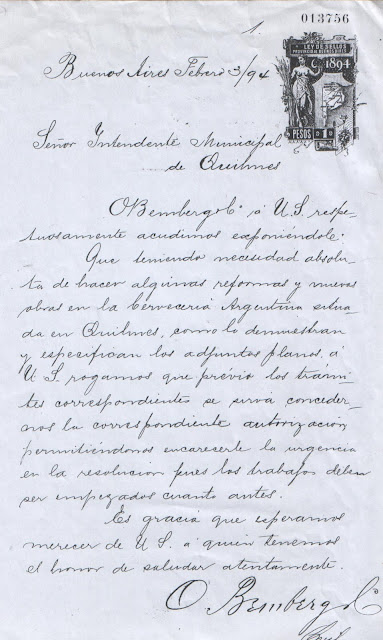 1.
013756
LEY DE SELLOS
PROVINCIA DE BUENOS AIRES
1894
PESOS 1
Buenos Aires Febero 3/94
Señor Intendente Municipal
de Quilmes
O Bemberg & Cª á U.S. respe-
tuosamente acudimos exponiéndole:
Que teniendo necesidad absolu-
ta de hacer algunas reformas y nuevas
obras en la Cerveceria Argentina situa-
da en Quilmes, como lo demuestran
y especifican los adjuntos planos, á
U.S. rogamos que prévio los trámi-
tes correspondientes se sirva conceder-
nos la correspondiente autorización
permitiéndonos encarecerle la urgencia
en la resolucion pues los trabajos deben
ser empezados cuanto antes.
Es gracia que esperamos
merecer de U.S. á quien tenemos
el honor de saludar atentamente.
O Bemberg & Cª